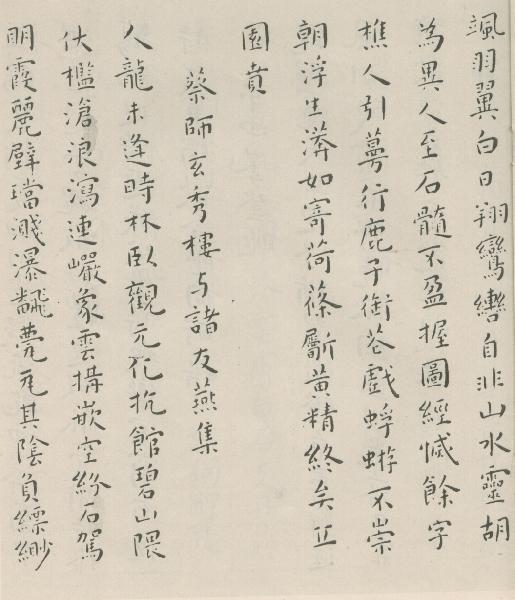 颯羽翼白日翔鸞轡自非山水靈胡
為異人至石髓不盈握圖經惐餘字
樵人引蕚行鹿子銜芲戲蜉蝣不崇
朝浮生漭如寄荷蓧斸黄精終矣丘
園賁
蔡師玄秀樓与諸友燕集
人龍未逢時林臥觀元化抗館碧山隈
伏檻滄浪瀉連巘象雲搆嵌空紛石駕
明霞麗壁璫濺瀑飜甍瓦其陰負縹緲